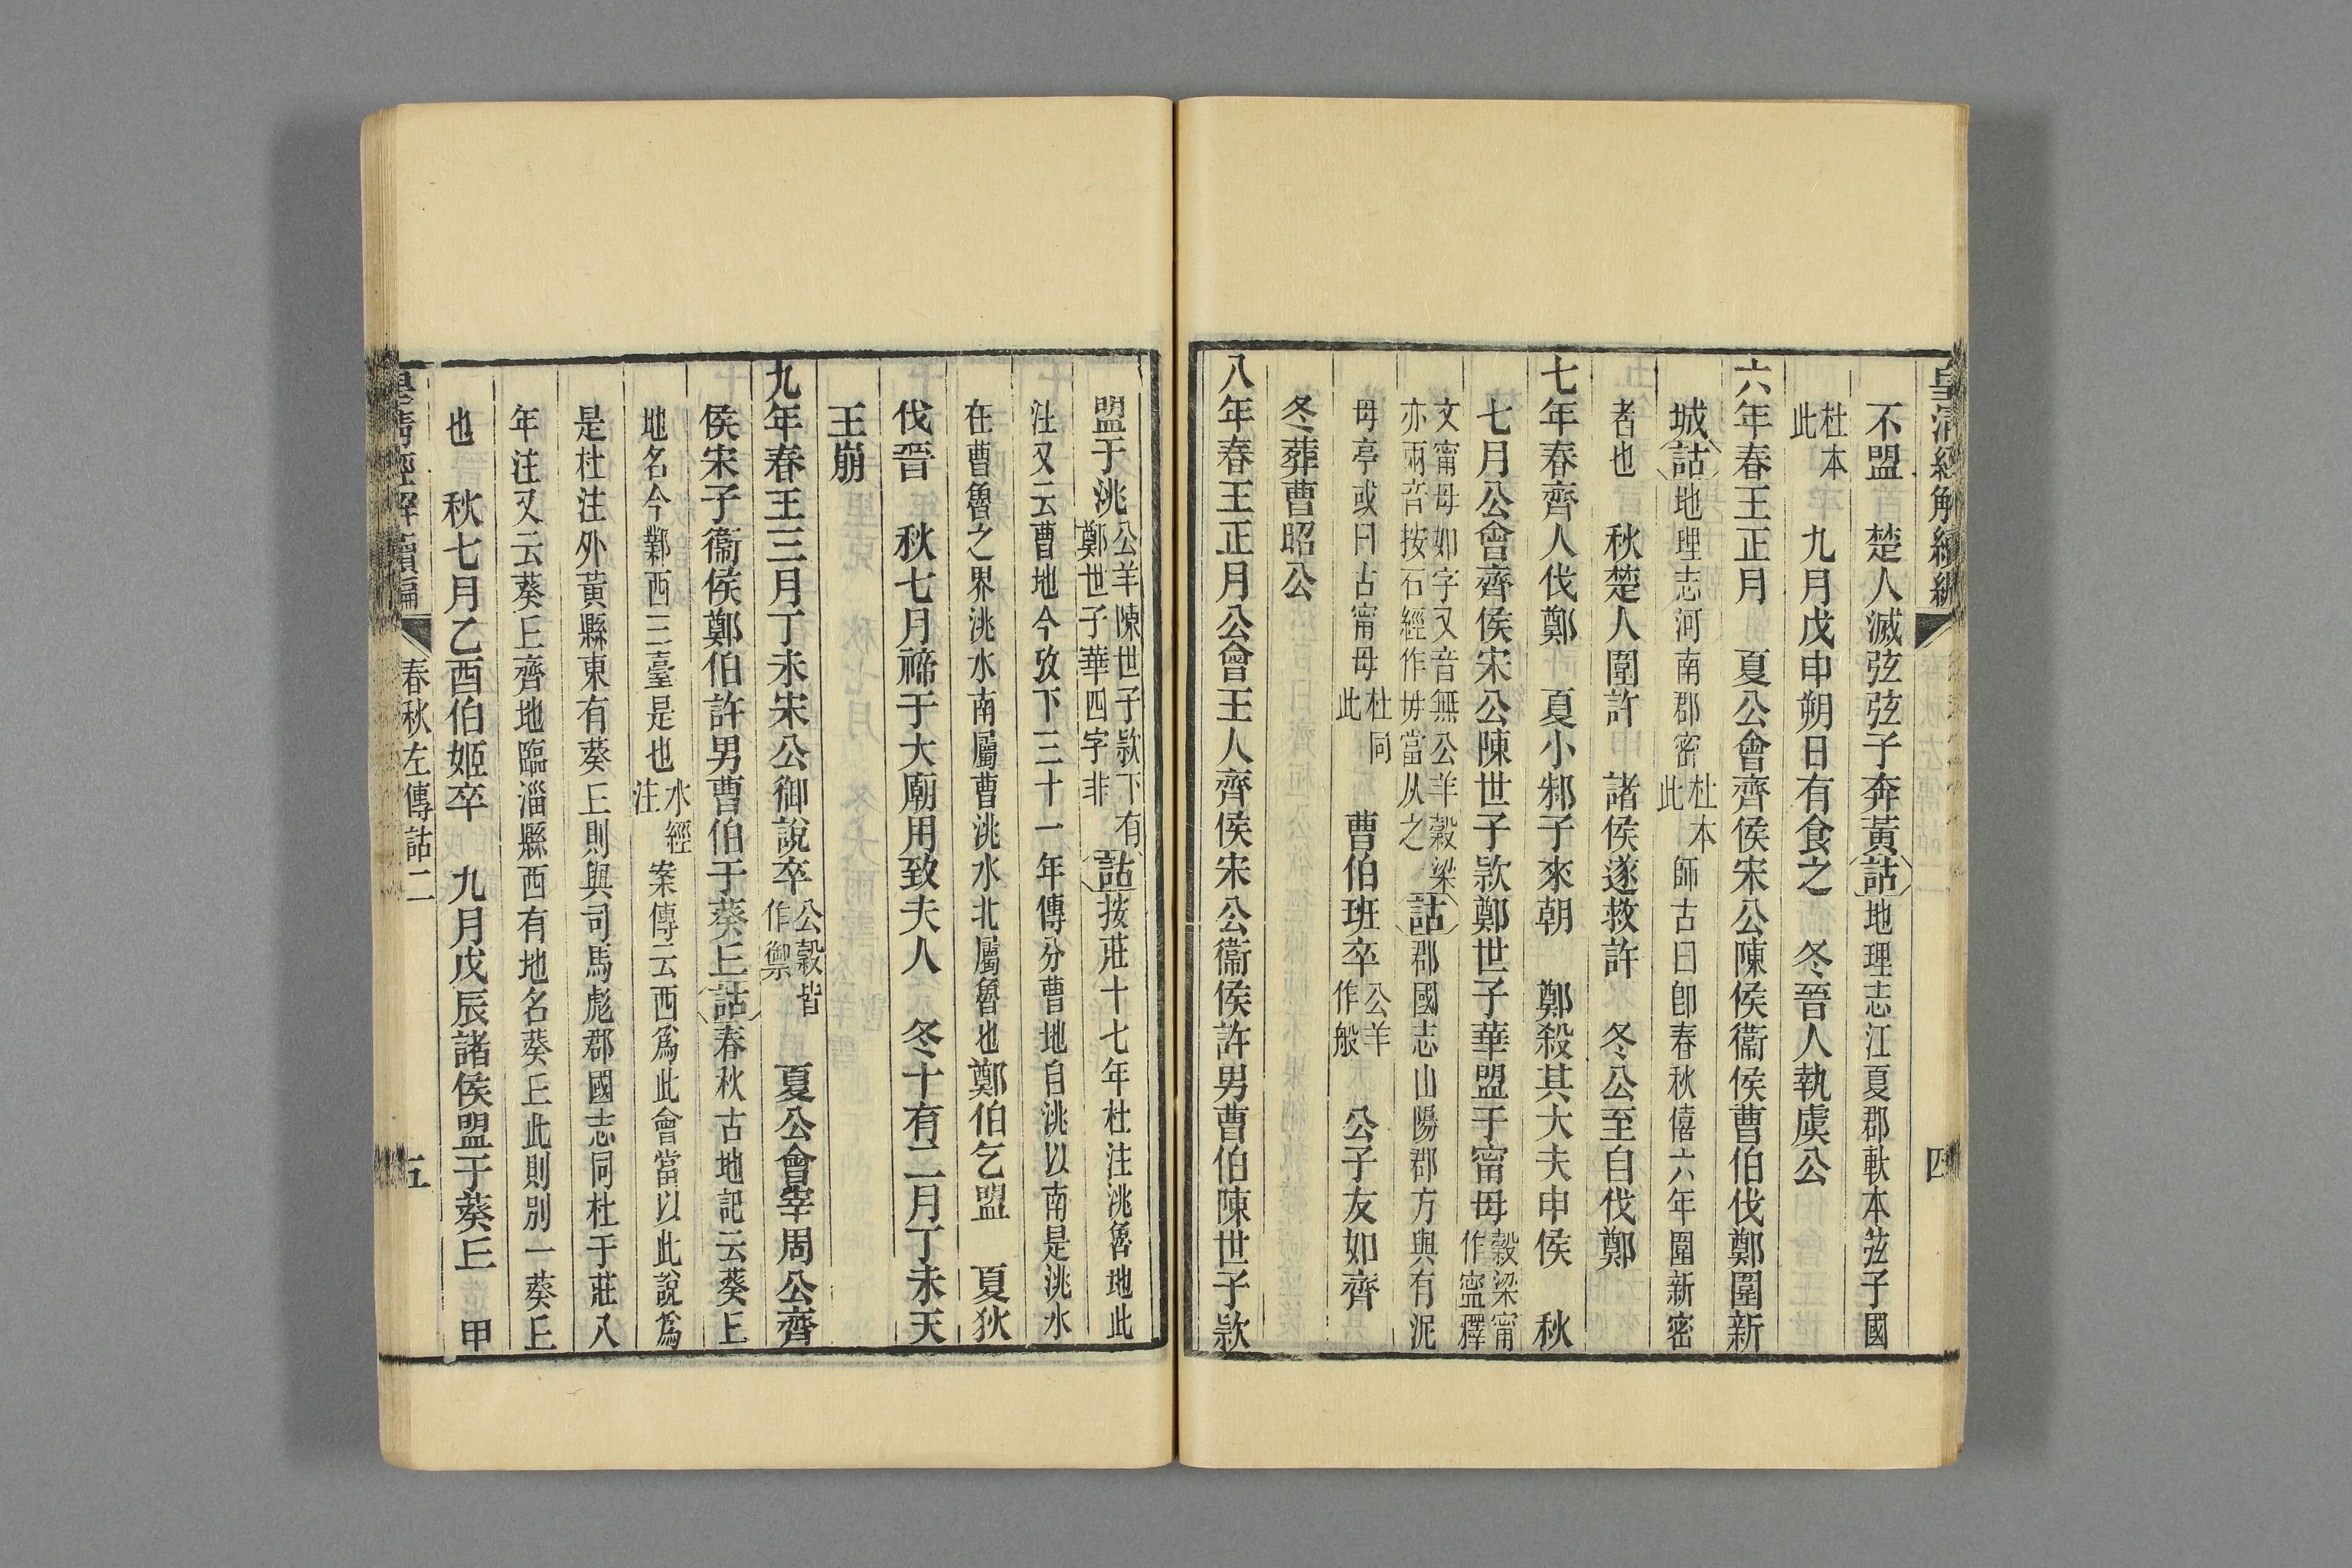 皇清經解續編
四
不盟　楚人滅弦弦子奔黃詁地理志江夏郡軑本弦子國
杜本此　九月戊申朔日有食之　冬晉人執虞公
六年春王正月　夏公會齊侯宋公陳侯衞侯曹伯伐鄭圍新
城詁地理志河南郡密杜本此師古曰卽春秋僖六年圍新密
者也　秋楚人圍許　諸侯遂救許　冬公至自伐鄭
七年春齊人伐鄭　夏小邾子來朝　鄭殺其大夫申侯　秋
七月公會齊侯宋公陳世子款鄭世子華盟于甯母穀梁甯作寍釋
文甯母如字又音無公羊穀梁亦兩音按石經作毋當从之詁郡國志山陽郡方與有泥
母亭或曰古甯母杜同此　曹伯班卒公羊作般　公子友如齊
冬葬曹昭公
八年春王正月公會王人齊侯宋公衞侯許男曹伯陳世子款
盟于洮公羊陳世子款下有鄭世子華四字非詁按莊十七年杜注洮魯地此
注又云曹地今攷下三十一年傳分曹地自洮以南是洮水
在曹魯之界洮水南屬曹洮水北屬魯也鄭伯乞盟　夏狄
伐晉　秋七月禘于大廟用致夫人　冬十有二月丁未天
王崩
九年春王三月丁未宋公御說卒公穀皆作禦　夏公會宰周公齊
侯宋子衞侯鄭伯許男曹伯于葵丘詁春秋古地記云葵丘
地名今鄴西三臺是也水經注案傳云西爲此會當以此說爲
是杜注外黃縣東有葵丘則與司馬彪郡國志同杜于莊八
年注又云葵丘齊地臨淄縣西有地名葵丘此則別一葵丘
也　秋七月乙酉伯姬卒　九月戊辰諸侯盟于葵丘　甲
皇淸經解續編
春秋左傳詁二
五